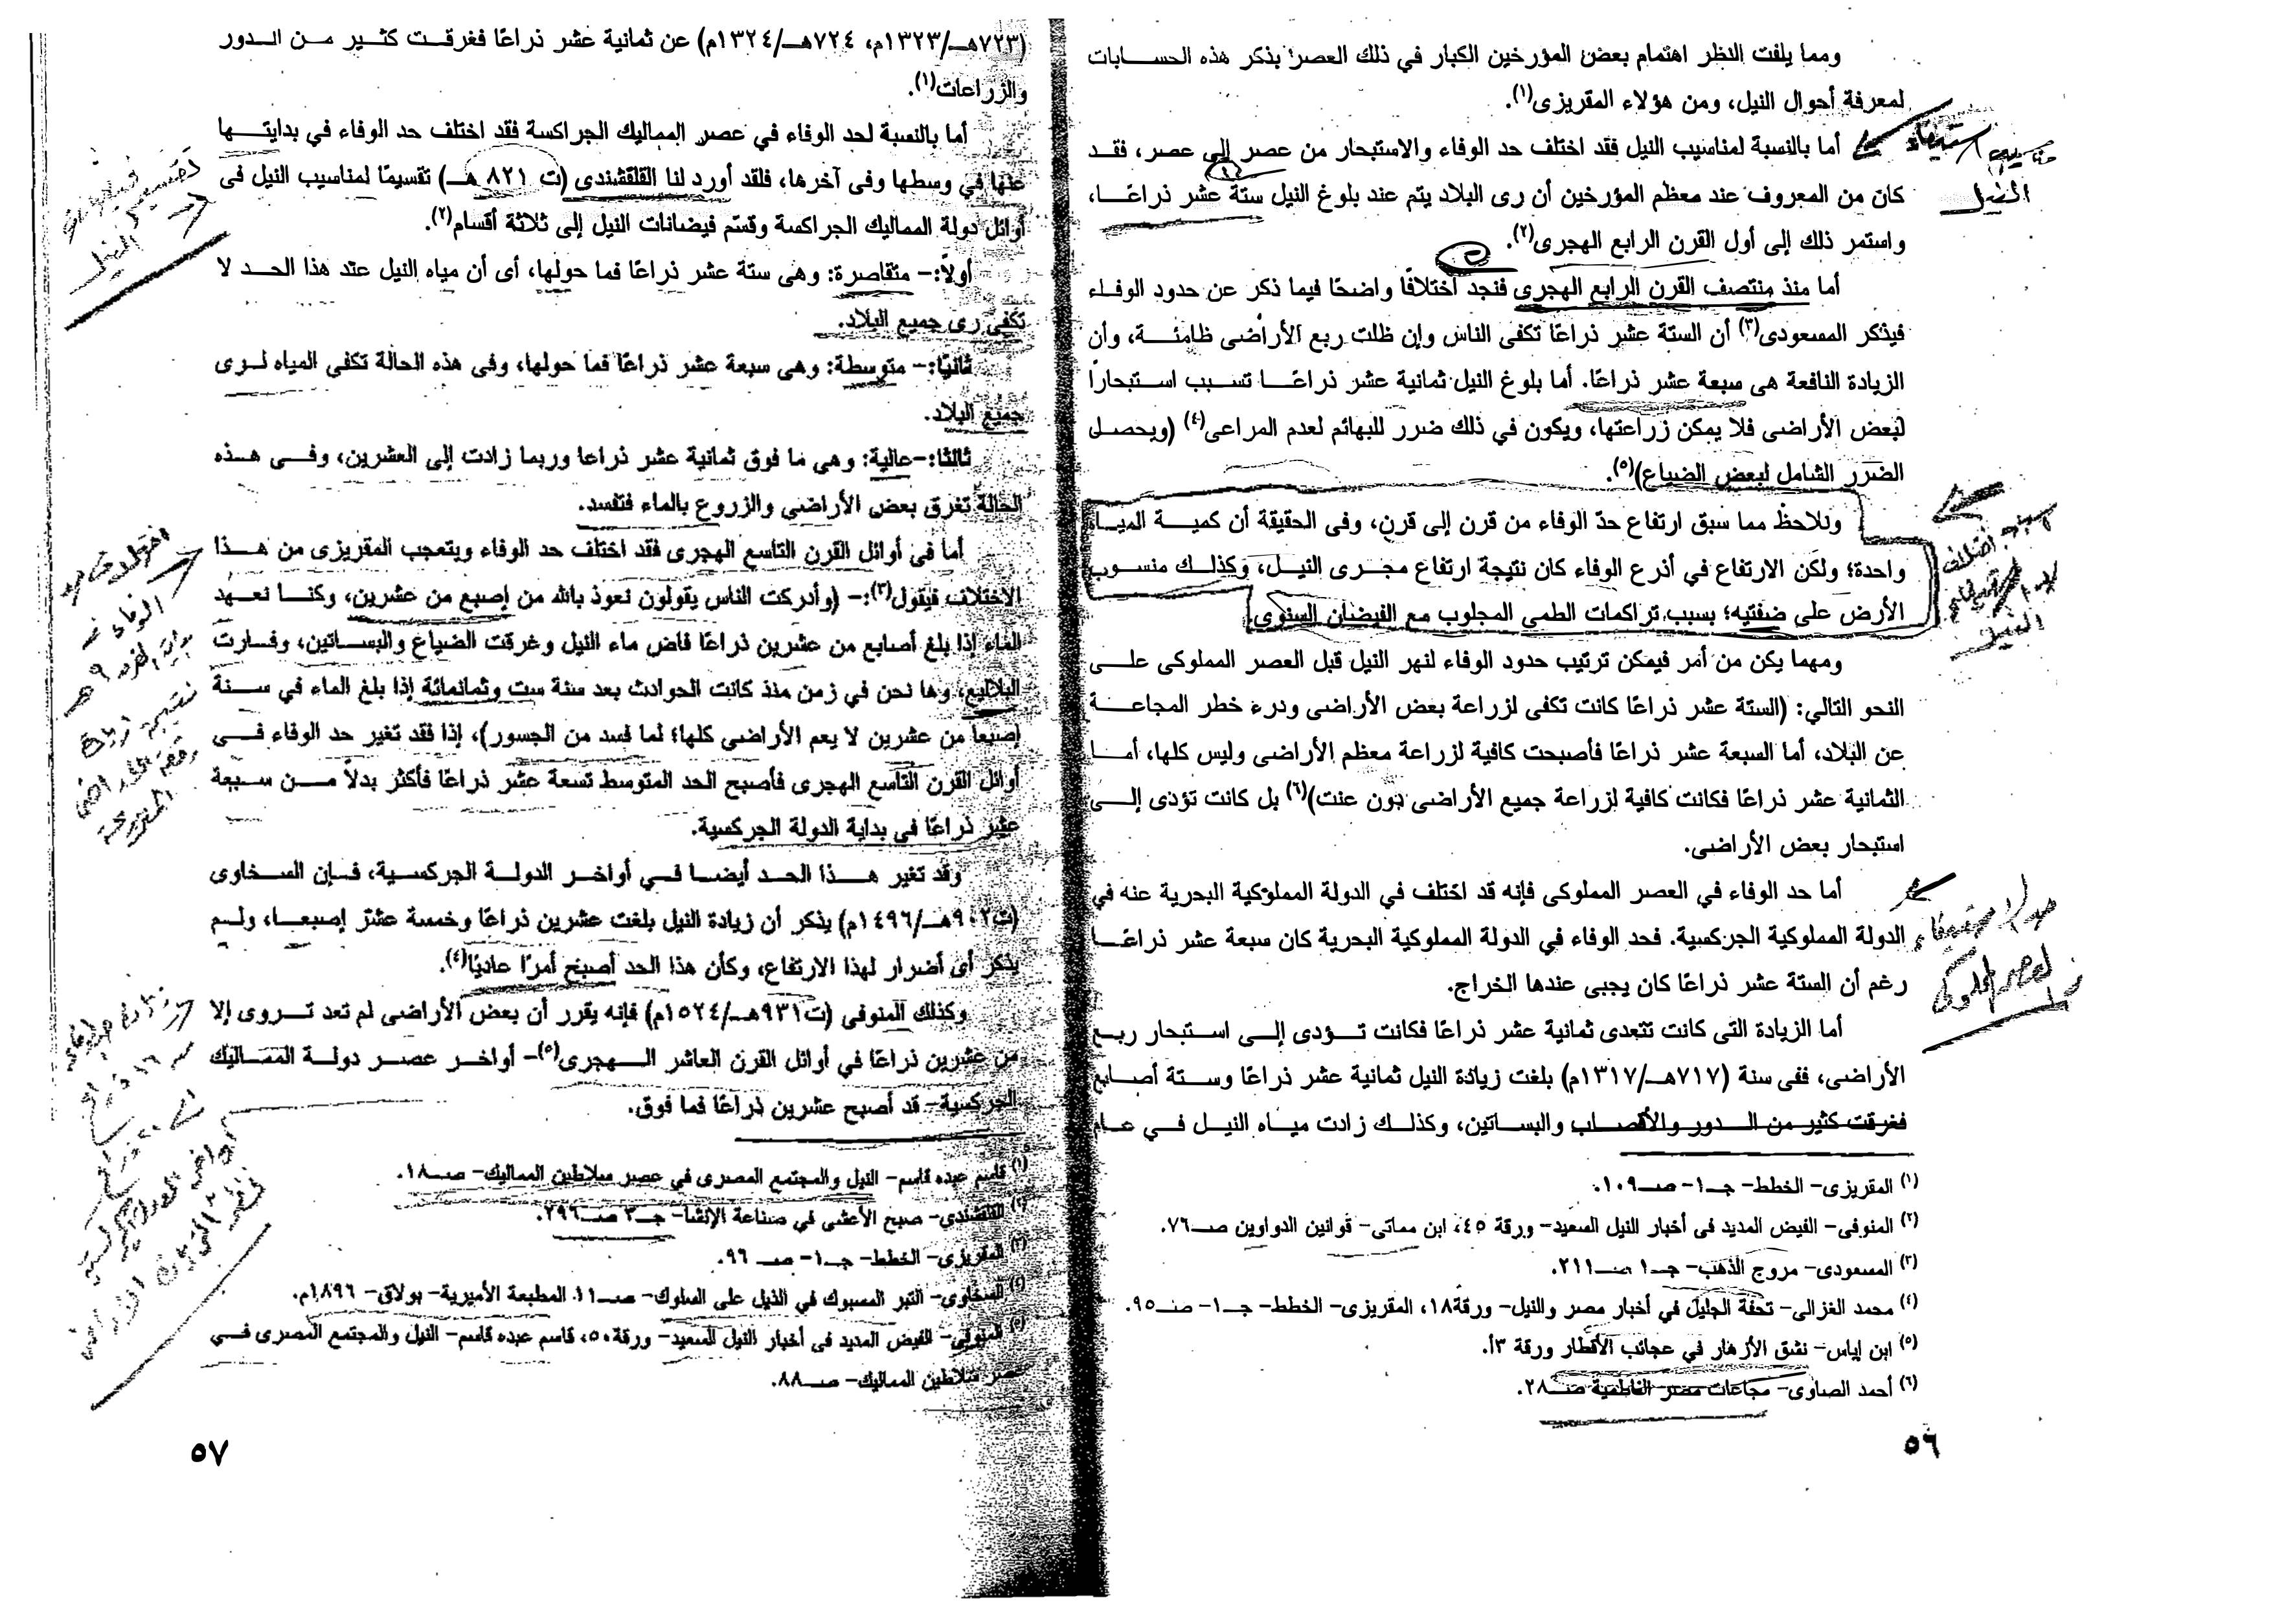 ومما يلفت النظر اهتمام بعض المؤرخين الكبار في ذلك العصر بذكر هذه الحسابات
لمعرفة أحوال النيل، ومن هؤلاء المقريزى(١).
أما بالنسبة لمناسيب النيل فقد اختلف حد الوفاء والاستبحار من عصر إلى عصر، فقد
كان من المعروف عند معظم المؤرخين أن رى البلاد يتم عند بلوغ النيل ستة عشر ذراعًا،
واستمر ذلك إلى أول القرن الرابع الهجرى(٢).
أما منذ منتصف القرن الرابع الهجرى فنجد اختلافًا واضحًا فيما ذكر عن حدود الوفاء
فيذكر المسعودى(٣) أن الستة عشر ذراعًا تكفى الناس وإن ظلت ربع الأراضى ظامئة، وأن
الزيادة النافعة هى سبعة عشر ذراعًا. أما بلوغ النيل ثمانية عشر ذراعًا تسبب استبحارًا
لبعض الأراضى فلا يمكن زراعتها، ويكون في ذلك ضرر للبهائم لعدم المراعى(٤) (ويحصل
الضرر الشامل لبعض الضياع)(٥).
ونلاحظ مما سبق ارتفاع حدّ الوفاء من قرن إلى قرن، وفى الحقيقة أن كمية المياه
واحدة؛ ولكن الارتفاع في أذرع الوفاء كان نتيجة ارتفاع مجرى النيل، وكذلك منسوب
الأرض على ضفتيه؛ بسبب تراكمات الطمى المجلوب مع الفيضان السنوى.
ومهما يكن من أمر فيمكن ترتيب حدود الوفاء لنهر النيل قبل العصر المملوكى على
النحو التالي: (الستة عشر ذراعًا كانت تكفى لزراعة بعض الأراضى ودرء خطر المجاعة
عن البلاد، أما السبعة عشر ذراعًا فأصبحت كافية لزراعة معظم الأراضى وليس كلها، أما
الثمانية عشر ذراعًا فكانت كافية لزراعة جميع الأراضى دون عنت)(٦) بل كانت تؤدى إلى
استبحار بعض الأراضى.
أما حد الوفاء في العصر المملوكى فإنه قد اختلف في الدولة المملوكية البحرية عنه في
الدولة المملوكية الجركسية. فحد الوفاء في الدولة المملوكية البحرية كان سبعة عشر ذراعًا
رغم أن الستة عشر ذراعًا كان يجبى عندها الخراج.
أما الزيادة التى كانت تتعدى ثمانية عشر ذراعًا فكانت تؤدى إلى استبحار ربع
الأراضى، ففى سنة (٧١٧هـ/١٣١٧م) بلغت زيادة النيل ثمانية عشر ذراعًا وستة أصابع
فغرقت كثير من الدور والأقصاب والبساتين، وكذلك زادت مياه النيل في عام
(١) المقريزى- الخطط- جـ١- صـ١٠٩.
(٢) المنوفى- الفيض المديد فى أخبار النيل السعيد- ورقة ٤٥، ابن مماتى- قوانين الدواوين صـ٧٦.
(٣) المسعودى- مروج الذهب- جـ١ صـ٢١١.
(٤) محمد الغزالى- تحفة الجليل في أخبار مصر والنيل- ورقة١٨، المقريزى- الخطط- جـ١- صـ٩٥.
(٥) ابن إياس- نشق الأزهار في عجائب الأقطار ورقة ٣أ.
(٦) أحمد الصاوى- مجاعات مصر الفاطمية صـ٢٨.
٥٦
(٧٢٣هـ/١٣٢٣م، ٧٢٤هـ/١٣٢٤م) عن ثمانية عشر ذراعًا فغرقت كثير من الدور
والزراعات(١).
أما بالنسبة لحد الوفاء في عصر المماليك الجراكسة فقد اختلف حد الوفاء في بدايتها
عنها في وسطها وفى آخرها، فلقد أورد لنا القلقشندى (ت ٨٢١ هـ) تقسيمًا لمناسيب النيل فى
أوائل دولة المماليك الجراكسة وقسّم فيضانات النيل إلى ثلاثة أقسام(٢).
أولاً:- متقاصرة: وهى ستة عشر ذراعًا فما حولها، أى أن مياه النيل عند هذا الحد لا
تكفى رى جميع البلاد.
ثانيًا:- متوسطة: وهى سبعة عشر ذراعًا فما حولها، وفى هذه الحالة تكفى المياه لرى
جميع البلاد.
ثالثا:-عالية: وهى ما فوق ثمانية عشر ذراعا وربما زادت إلى العشرين، وفى هذه
الحالة تغرق بعض الأراضى والزروع بالماء فتفسد.
أما فى أوائل القرن التاسع الهجرى فقد اختلف حد الوفاء ويتعجب المقريزى من هذا
الاختلاف فيقول(٣):- (وأدركت الناس يقولون نعوذ بالله من إصبع من عشرين، وكنا نعهد
الماء إذا بلغ أصابع من عشرين ذراعًا فاض ماء النيل وغرقت الضياع والبساتين، وفارت
البلاليع، وها نحن في زمن منذ كانت الحوادث بعد سنة ست وثمانمائة إذا بلغ الماء في سنة
إصبعا من عشرين لا يعم الأراضى كلها؛ لما فسد من الجسور)، إذا فقد تغير حد الوفاء فى
أوائل القرن التاسع الهجرى فأصبح الحد المتوسط تسعة عشر ذراعًا فأكثر بدلاً من سبعة
عشر ذراعًا في بداية الدولة الجركسية.
وقد تغير هذا الحد أيضا في أواخر الدولة الجركسية، فإن السخاوى
(ت٩٠٢هـ/١٤٩٦م) يذكر أن زيادة النيل بلغت عشرين ذراعًا وخمسة عشر إصبعا، ولم
يذكر أى أضرار لهذا الارتفاع، وكأن هذا الحد أصبح أمرًا عاديًا(٤).
وكذلك المنوفى (ت٩٣١هـ/١٥٢٤م) فإنه يقرر أن بعض الأراضى لم تعد تروى إلا
من عشرين ذراعًا في أوائل القرن العاشر الهجرى(٥)- أواخر عصر دولة المماليك
الجركسية- قد أصبح عشرين ذراعًا فما فوق.
(١) قاسم عبده قاسم- النيل والمجتمع المصرى في عصر سلاطين المماليك- صـ١٨.
(٢) القلقشندى- صبح الأعشى في صناعة الإنشا- جـ٣ صـ٢٩٦.
(٣) المقريزى- الخطط- جـ١- صـ ٩٦.
(٤) السخاوى- التبر المسبوك في الذيل على السلوك- صـ١١ المطبعة الأميرية- بولاق- ١٨٩٦م.
(٥) المنوفى- الفيض المديد فى أخبار النيل السعيد- ورقة٥٠، قاسم عبده قاسم- النيل والمجتمع المصرى في
عصر سلاطين المماليك- صـ٨٨.
٥٧